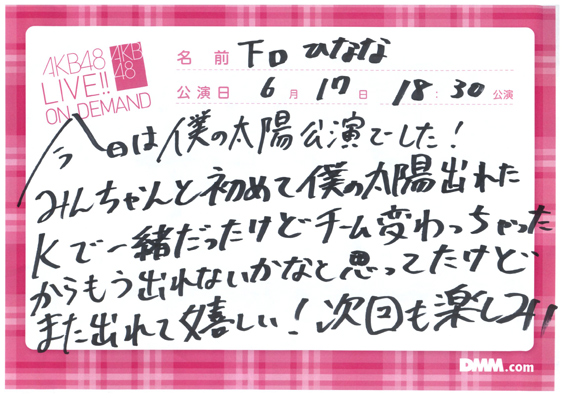 AKB48
LIVE!!
ON DEMAND
AKB
48
名前 下口 ひなな
公演日 6月 17日 18:30 公演
今日は僕の太陽公演でした!
みんちゃんと初めて僕の太陽出れた
Kで一緒だったけどチーム変わっちゃった
からもう出れないかなと思ってたけど
また出れて嬉しい!次回も楽しみ!
DMM.com